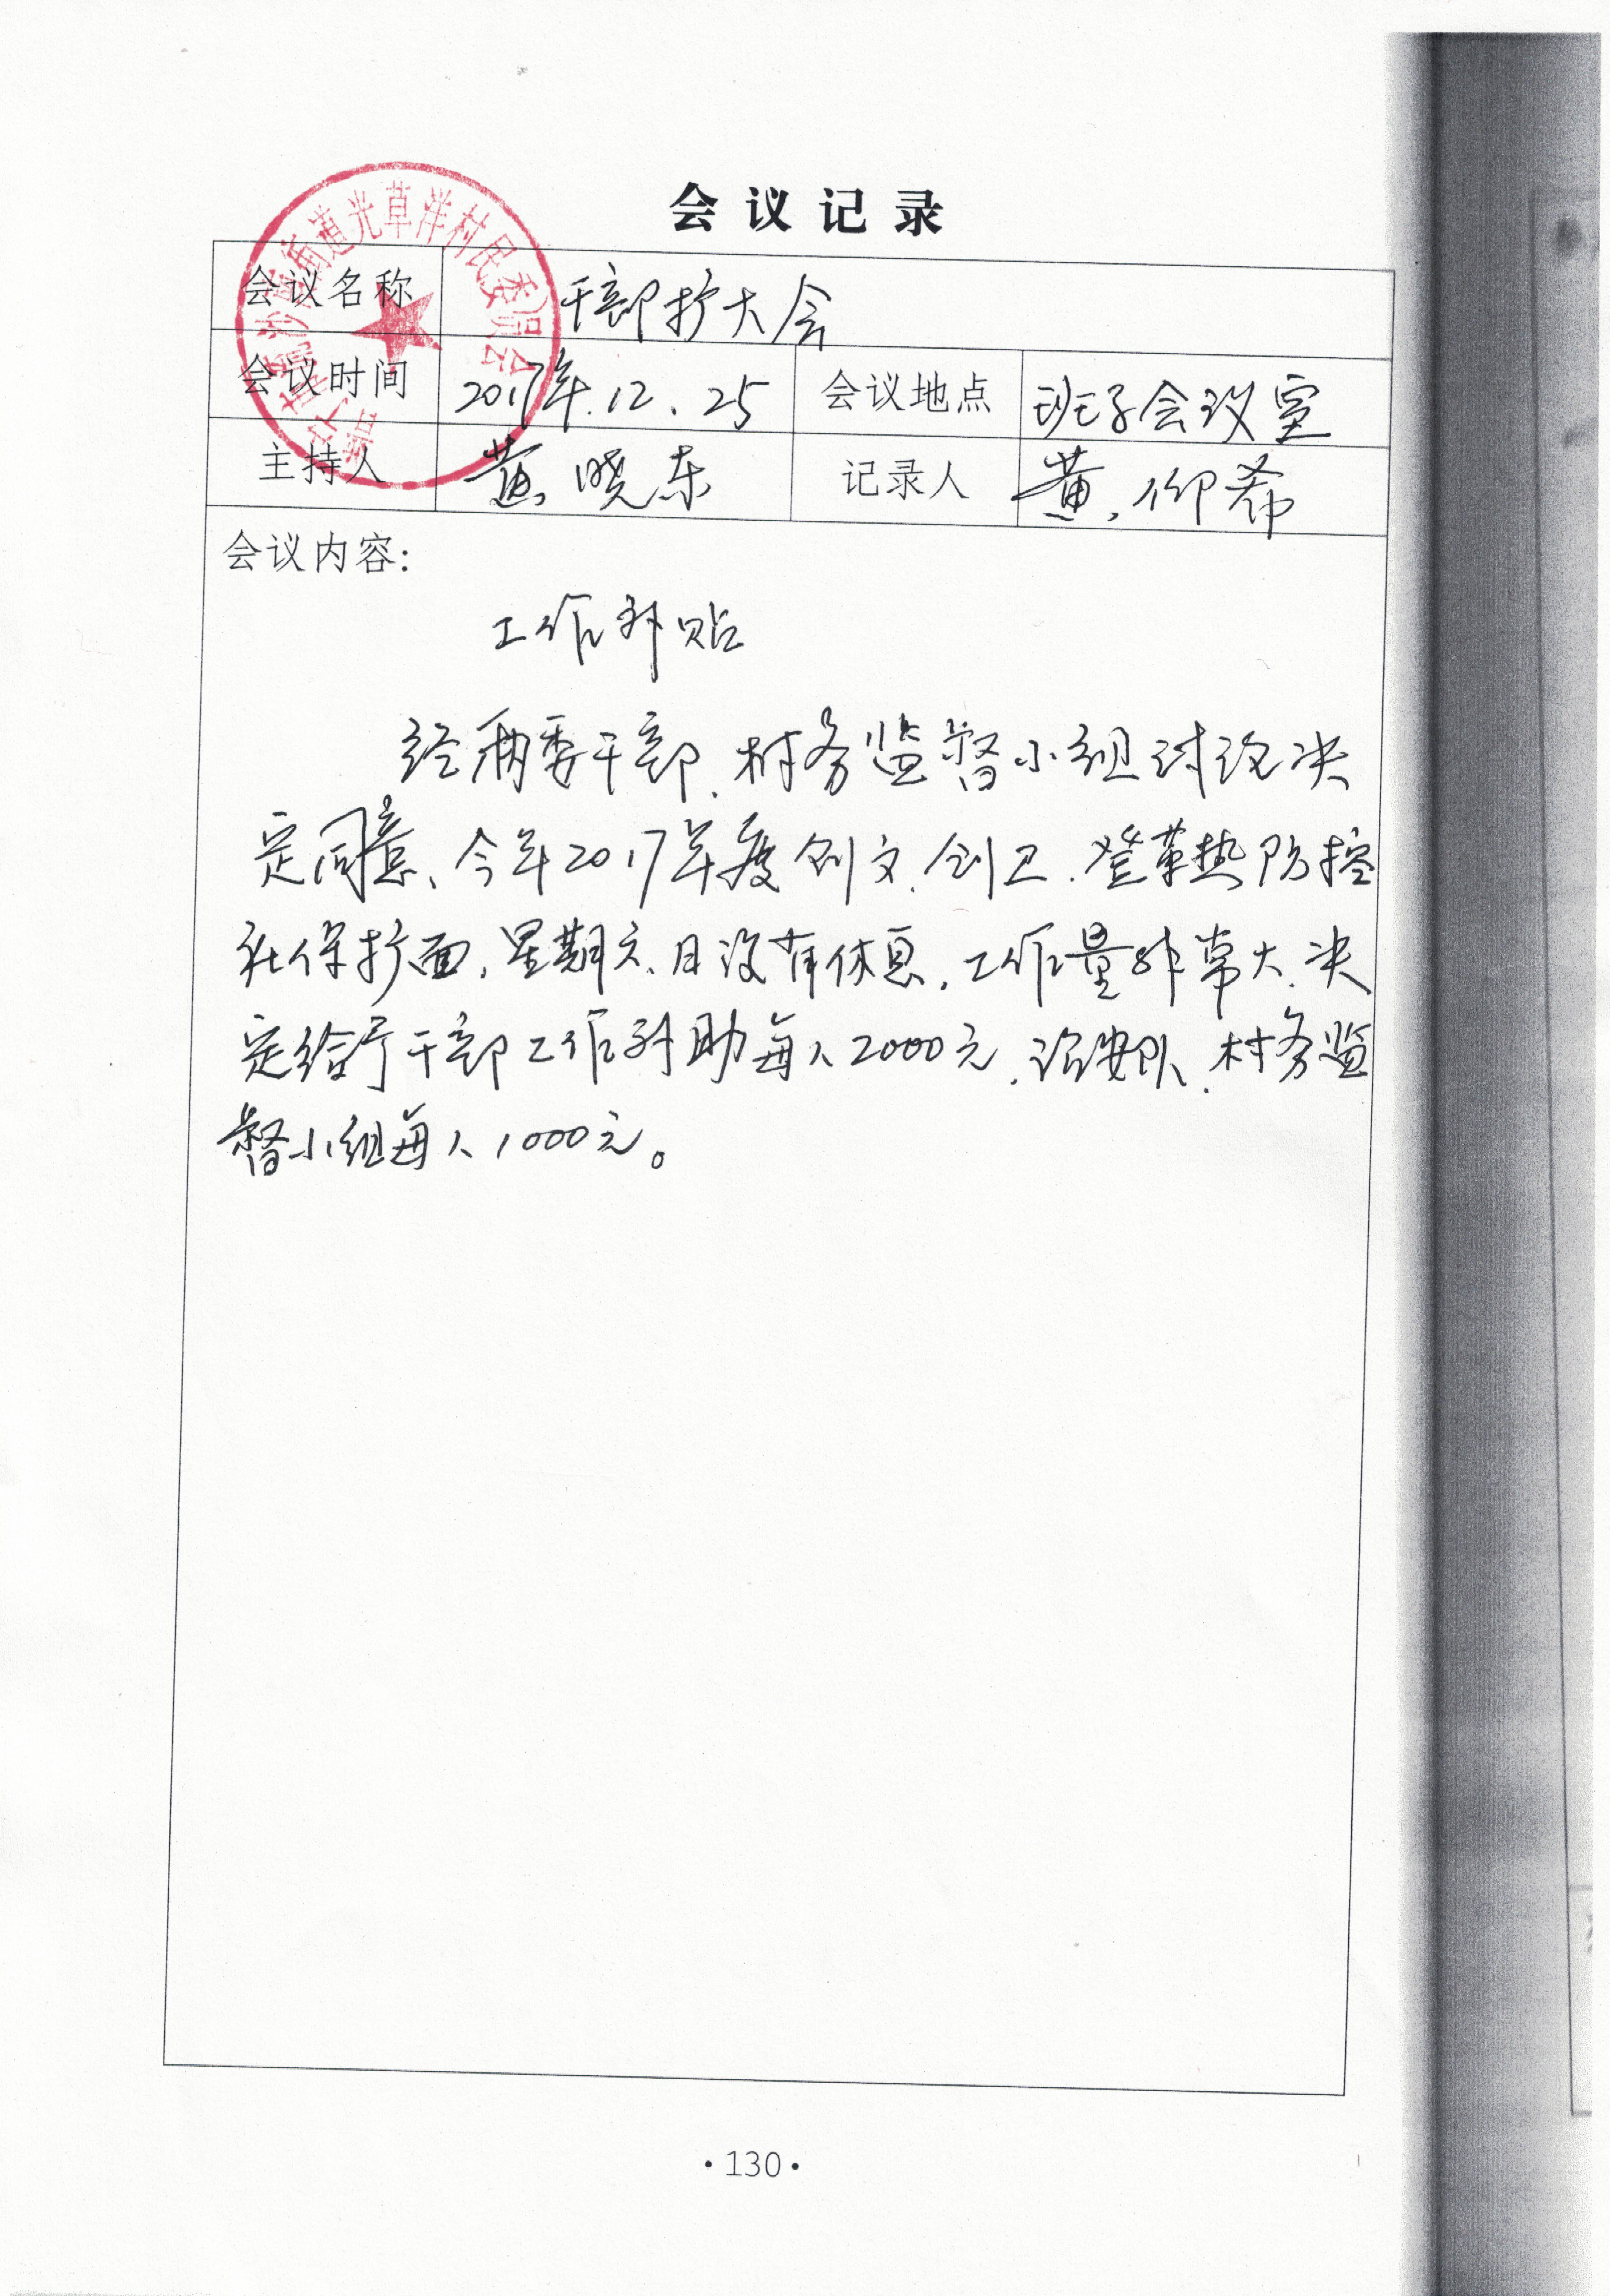 会议记录
会议名称 干部扩大会
会议时间 2017年.12.25 会议地点 班子会议室
主持人 黄晓东 记录人 黄仰希
会议内容：
工作补贴
经两委干部、村务监督小组讨论决
定同意、今年2017年度创文、创卫、登革热防控
社保扩面，星期六、日没有休息，工作量非常大、决
定给予干部工作补助每人2000元，治安队、村务监
督小组每人1000元。
街道光草洋村民委员会
·130·